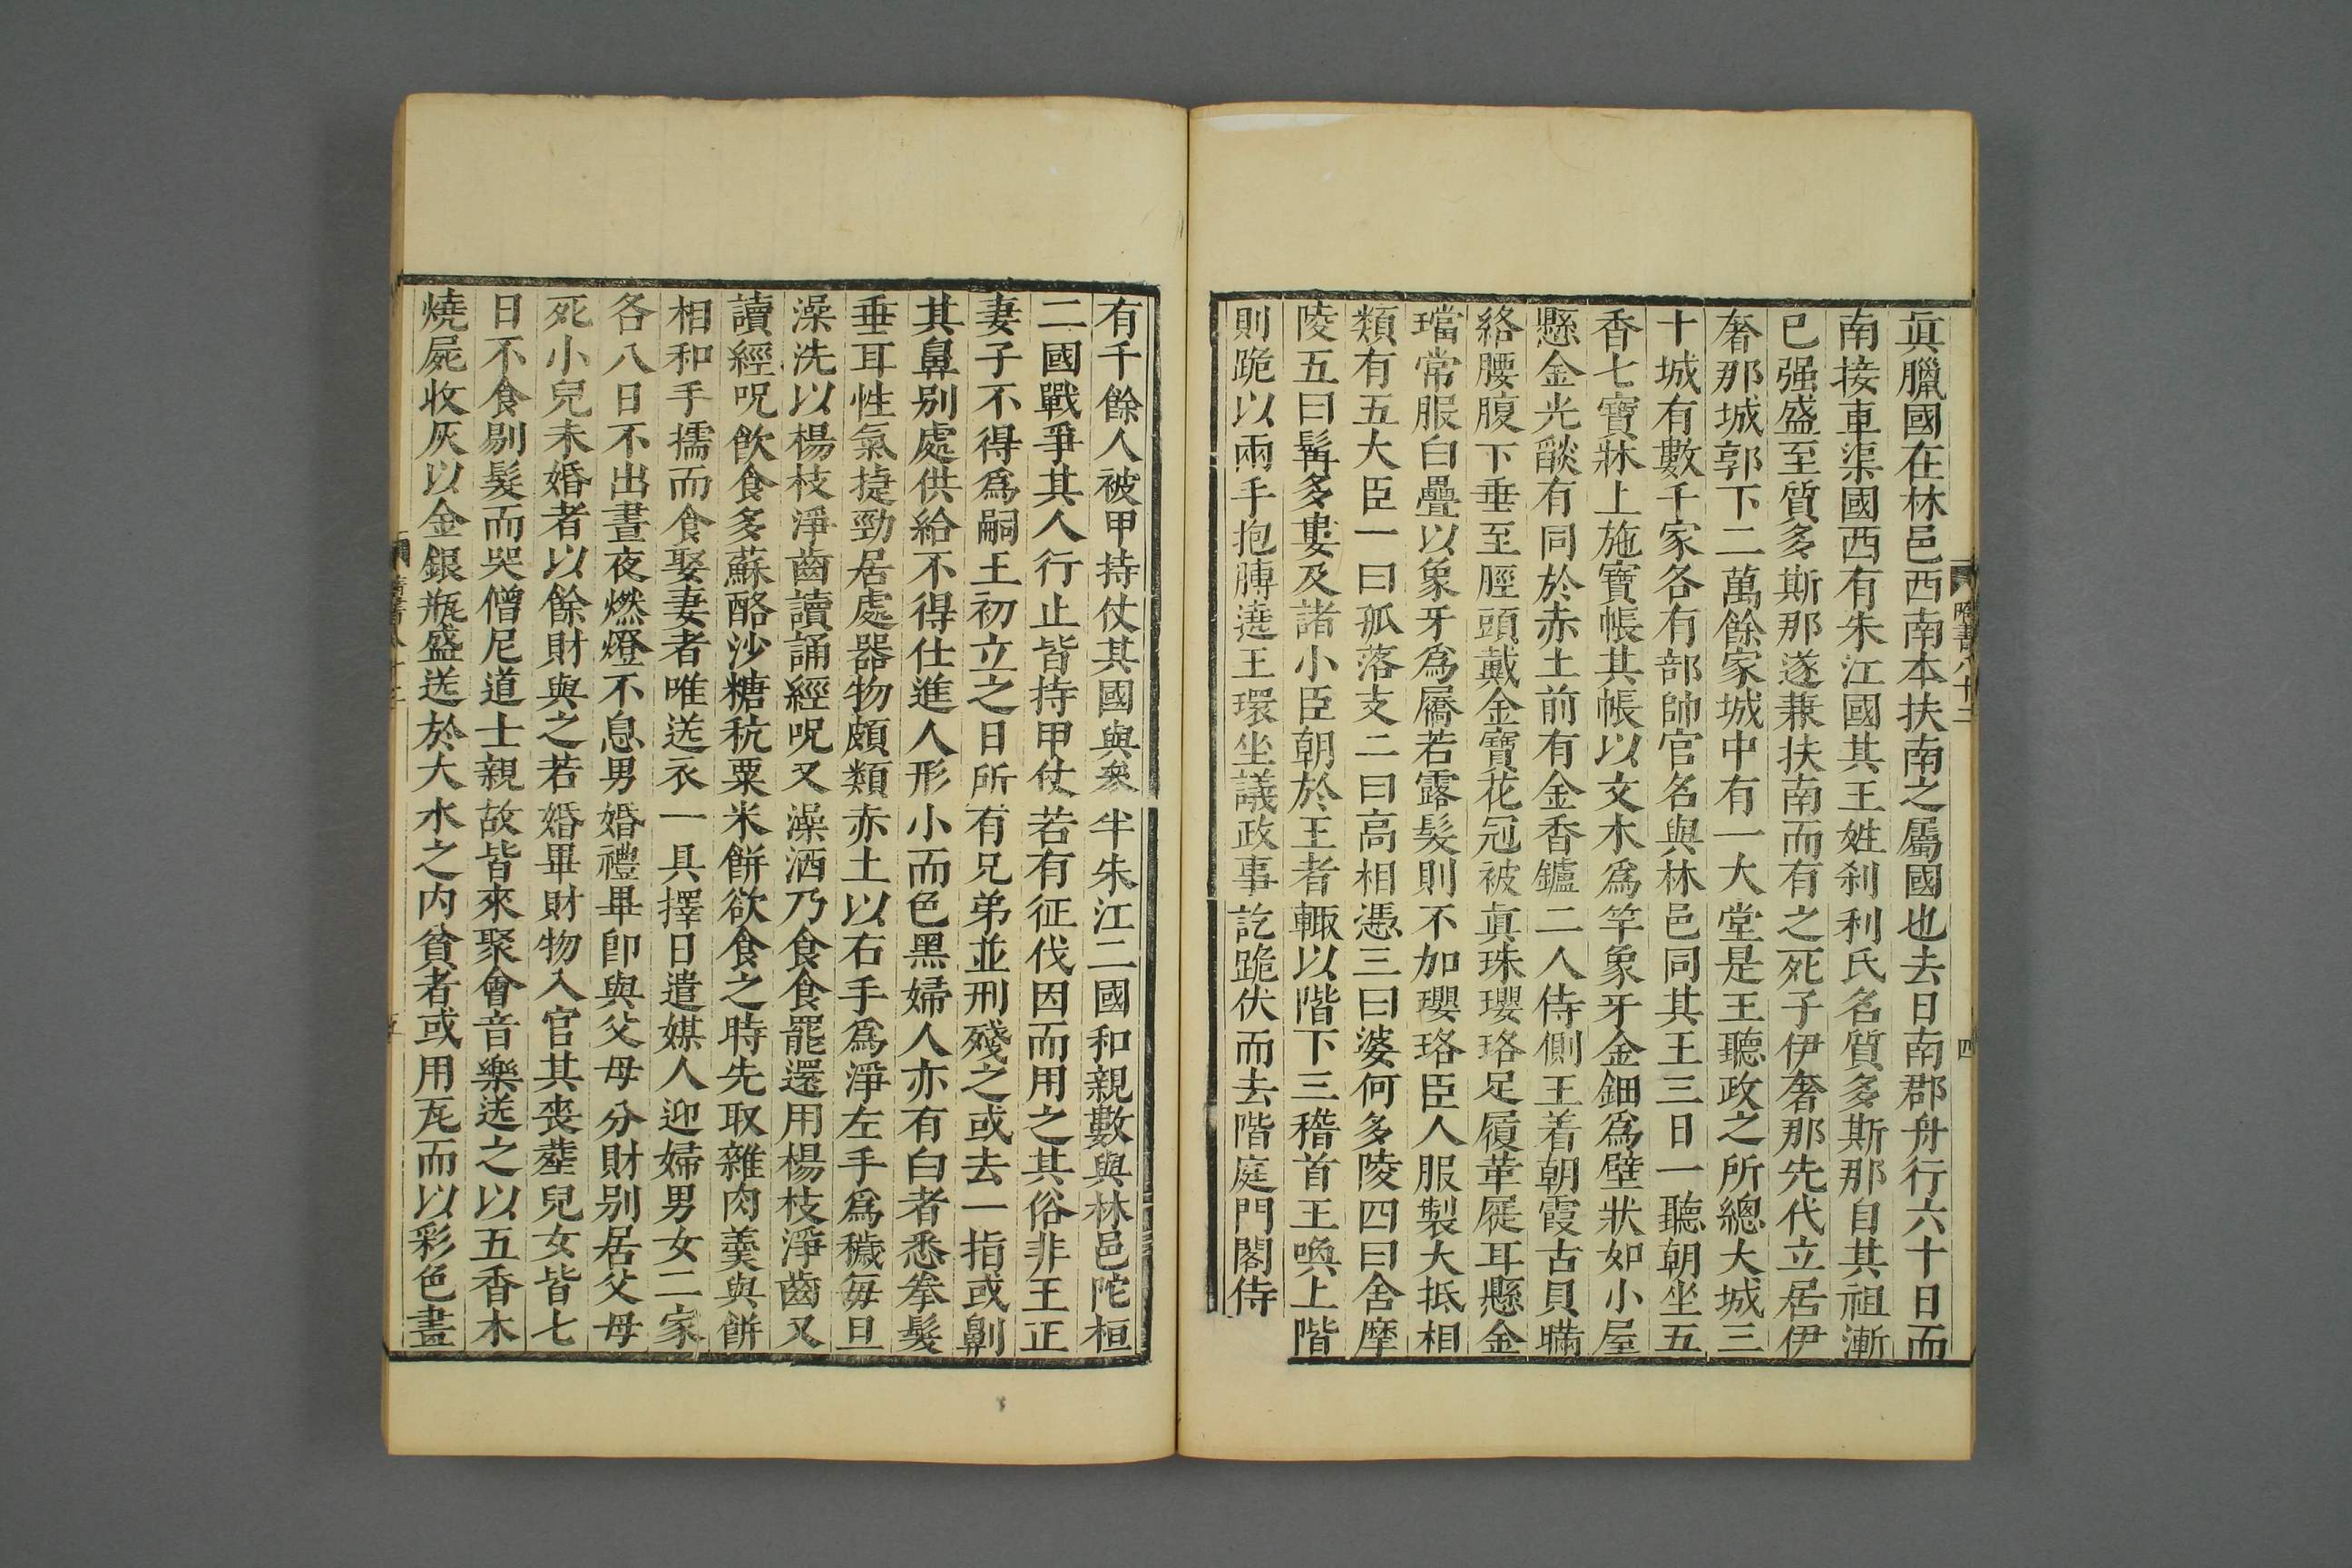 眞臘國在林邑西南本扶南之屬國也去日南郡舟行六十日而
南接車渠國西有朱江國其王姓刹利氏名質多斯那自其祖漸
已强盛至質多斯那遂兼扶南而有之死子伊奢那先代立居伊
奢那城郭下二萬餘家城中有一大堂是王聽政之所總大城三
十城有數千家各有部帥官名與林邑同其王三日一聽朝坐五
香七寶牀上施寶帳其帳以文木爲竿象牙金鈿爲壁狀如小屋
懸金光燄有同於赤土前有金香鑪二人侍側王着朝霞古貝瞞
絡腰腹下垂至脛頭戴金寶花冠被眞珠瓔珞足履革屣耳懸金
璫常服白疊以象牙爲屩若露髮則不加瓔珞臣人服製大抵相
類有五大臣一曰孤落支二曰高相憑三曰婆何多陵四曰舍摩
陵五曰髯多婁及諸小臣朝於王者輒以階下三稽首王喚上階
則跪以兩手抱膊遶王環坐議政事訖跪伏而去階庭門閣侍
隋書八十二
四
有千餘人被甲持仗其國與叅半朱江二國和親數與林邑陀桓
二國戰爭其人行止皆持甲仗若有征伐因而用之其俗非王正
妻子不得爲嗣王初立之日所有兄弟並刑殘之或去一指或劓
其鼻别處供給不得仕進人形小而色黑婦人亦有白者悉拳髮
垂耳性氣捷勁居處器物頗類赤土以右手爲淨左手爲穢每旦
澡洗以楊枝淨齒讀誦經呪又澡洒乃食食罷還用楊枝淨齒又
讀經呪飲食多蘇酪沙糖秔粟米餅欲食之時先取雜肉羹與餅
相和手擩而食娶妻者唯送衣一具擇日遣媒人迎婦男女二家
各八日不出晝夜燃燈不息男婚禮畢卽與父母分財别居父母
死小兒未婚者以餘財與之若婚畢財物入官其喪葬兒女皆七
日不食剔髮而哭僧尼道士親故皆來聚會音樂送之以五香木
燒屍收灰以金銀瓶盛送於大水之内貧者或用瓦而以彩色畫